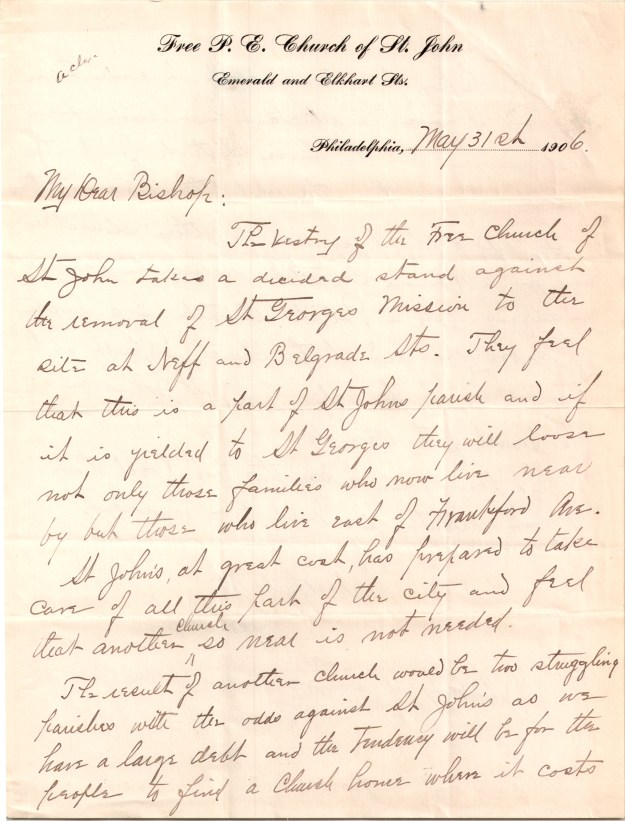 Free P. E. Church of St. John
Emerald and Elkhart Sts.
Philadelphia, May 31st 1906.
My Dear Bishop:
The Vestry of the Free Church of
St John takes a decided stand against
the removal of St Georges Mission to the
site at Neff and Belgrade Sts. They feel
that this is a part of St Johns parish and if
it is yielded to St Georges they will loose
not only those families who now live near
by but those who live east of Frankford Ave.
St John's, at great cost, has prepared to take
care of all this part of the city and feel
that another church so near is not needed.
The result of another church would be two struggling
parishes with the odds against St John's as we
have a large debt and the tendency will be for the
people to find a Church home where it costs